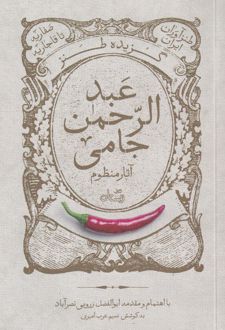 طنزآوران
ایران
صفاریه
تا قاجاریه
گزیده طنز
عبد
الرّحمن
جامی
آثار منظوم
با اهتمام و مقدمه ابوالفضل زرویی نصرآباد
به کوشش نسیم عرب امیری